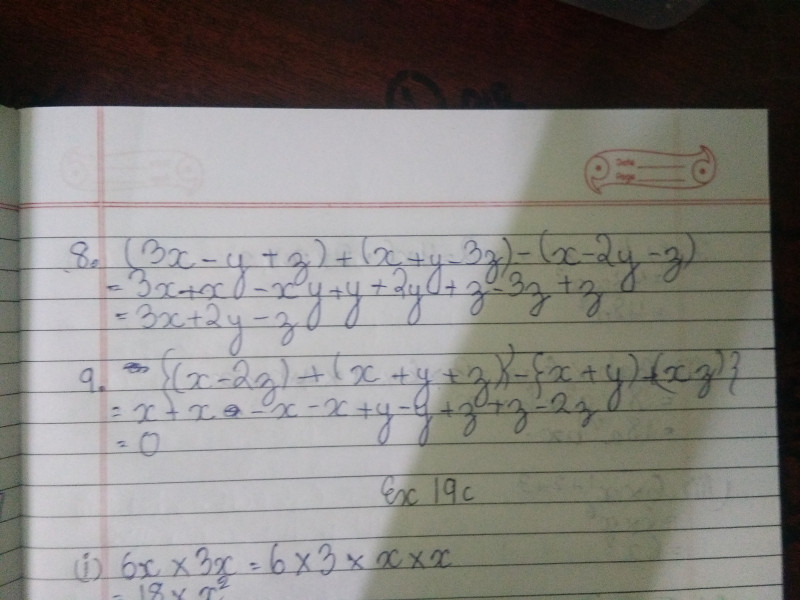 Date
Page
8. (3x - y + z) + (x + y - 3z) - (x - 2y - z)
= 3x + x - x y + y + 2y + z - 3z + z
= 3x + 2y - z
9. {(x - 2z) + (x + y + z)} - {x + y) + (x z)}
= x + x - x - x + y - y + z + z - 2z
= 0
Ex 19c
(i) 6x × 3x = 6 × 3 × x × x
= 18 × x²